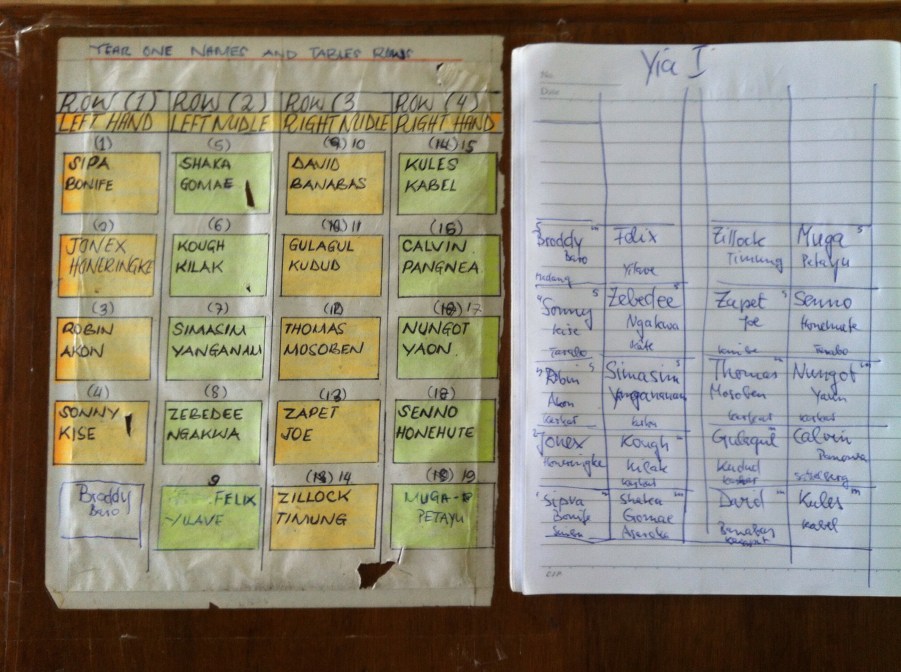 YEAR ONE NAMES AND TABLES ROWS
ROW (1) ROW (2) ROW (3 ROW (4)
LEFT HAND LEFT NUDLE RIGHT NUDLE RIGHT HAND
(1) (5) (9) 10 (14) 15
SIPA SHAKA DAVID KULES
BONIFE GOMAE BANABAS KABEL
(2) (6) (10) 11 (16)
JONEX KOUGH GULAGUL CALVIN
HONERINGKE KILAK KUDUD PANGNEA
(3) (7) (12) 17
ROBIN SIMASIM THOMAS NUNGOT
AKON YANGANAU MOSOBEN YAON
(4) (8) (13) (18)
SONNY ZEBEDEE ZAPET SENNO
KISE NGAKWA JOE HONEHUTE
9 14 19
Broddy FELIX ZILLOCK MUGA-
Baro YILAVE TIMUNG PETAYU
Yia I
No.
Date
Broddy Felix Zillock Muga
Baro Yilave Timung Petayu
Madang
Sonny Zebedee Zapet Senno
Kise Ngakwa Joe Honehute
Tarabo Kate Tarabo
Robin Simasim Thomas Nungot
Akon Yanganau Mosoben Yaun
Jonex Kough Gulagul Calvin
Honeringke Kilak Kudud
Sipva Shaka David Kules
Bonife Gomae Banabas Kabel